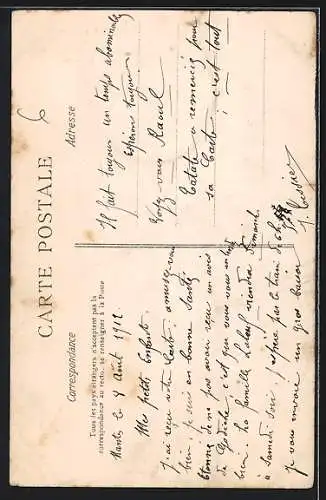 CARTE POSTALE
Correspondance
Tous les pays étrangers n'acceptent pas la
correspondance au recto, se renseigner à la Poste
Adresse
Nantes, le 9 Août 1912
Mes petits Enfants
J'ai reçu votre Carte: amusez-vous
bien; je suis en bonne Santé;
de ne pas avoir reçu un avis
de c'est que vous vous
bien, la famille viendra Dimanche
à Samedi Soir j'espère, par le train de 6h
Je vous envoie un gros baiser
Il fait toujours un temps abominable
Espérons toujours
vous Raoul
a remercié pour
sa Carte; c'est tout